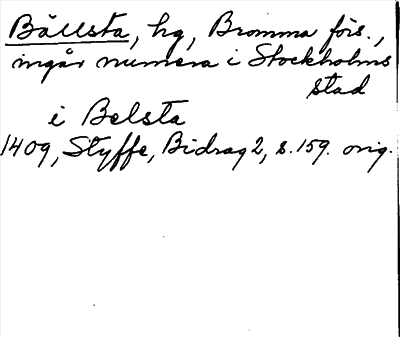 Bällsta, hg, Bromma förs.,
ingår numera i Stockholms
stad
i Belsta
1409, Styffe, Bidrag 2, s. 159. orig.